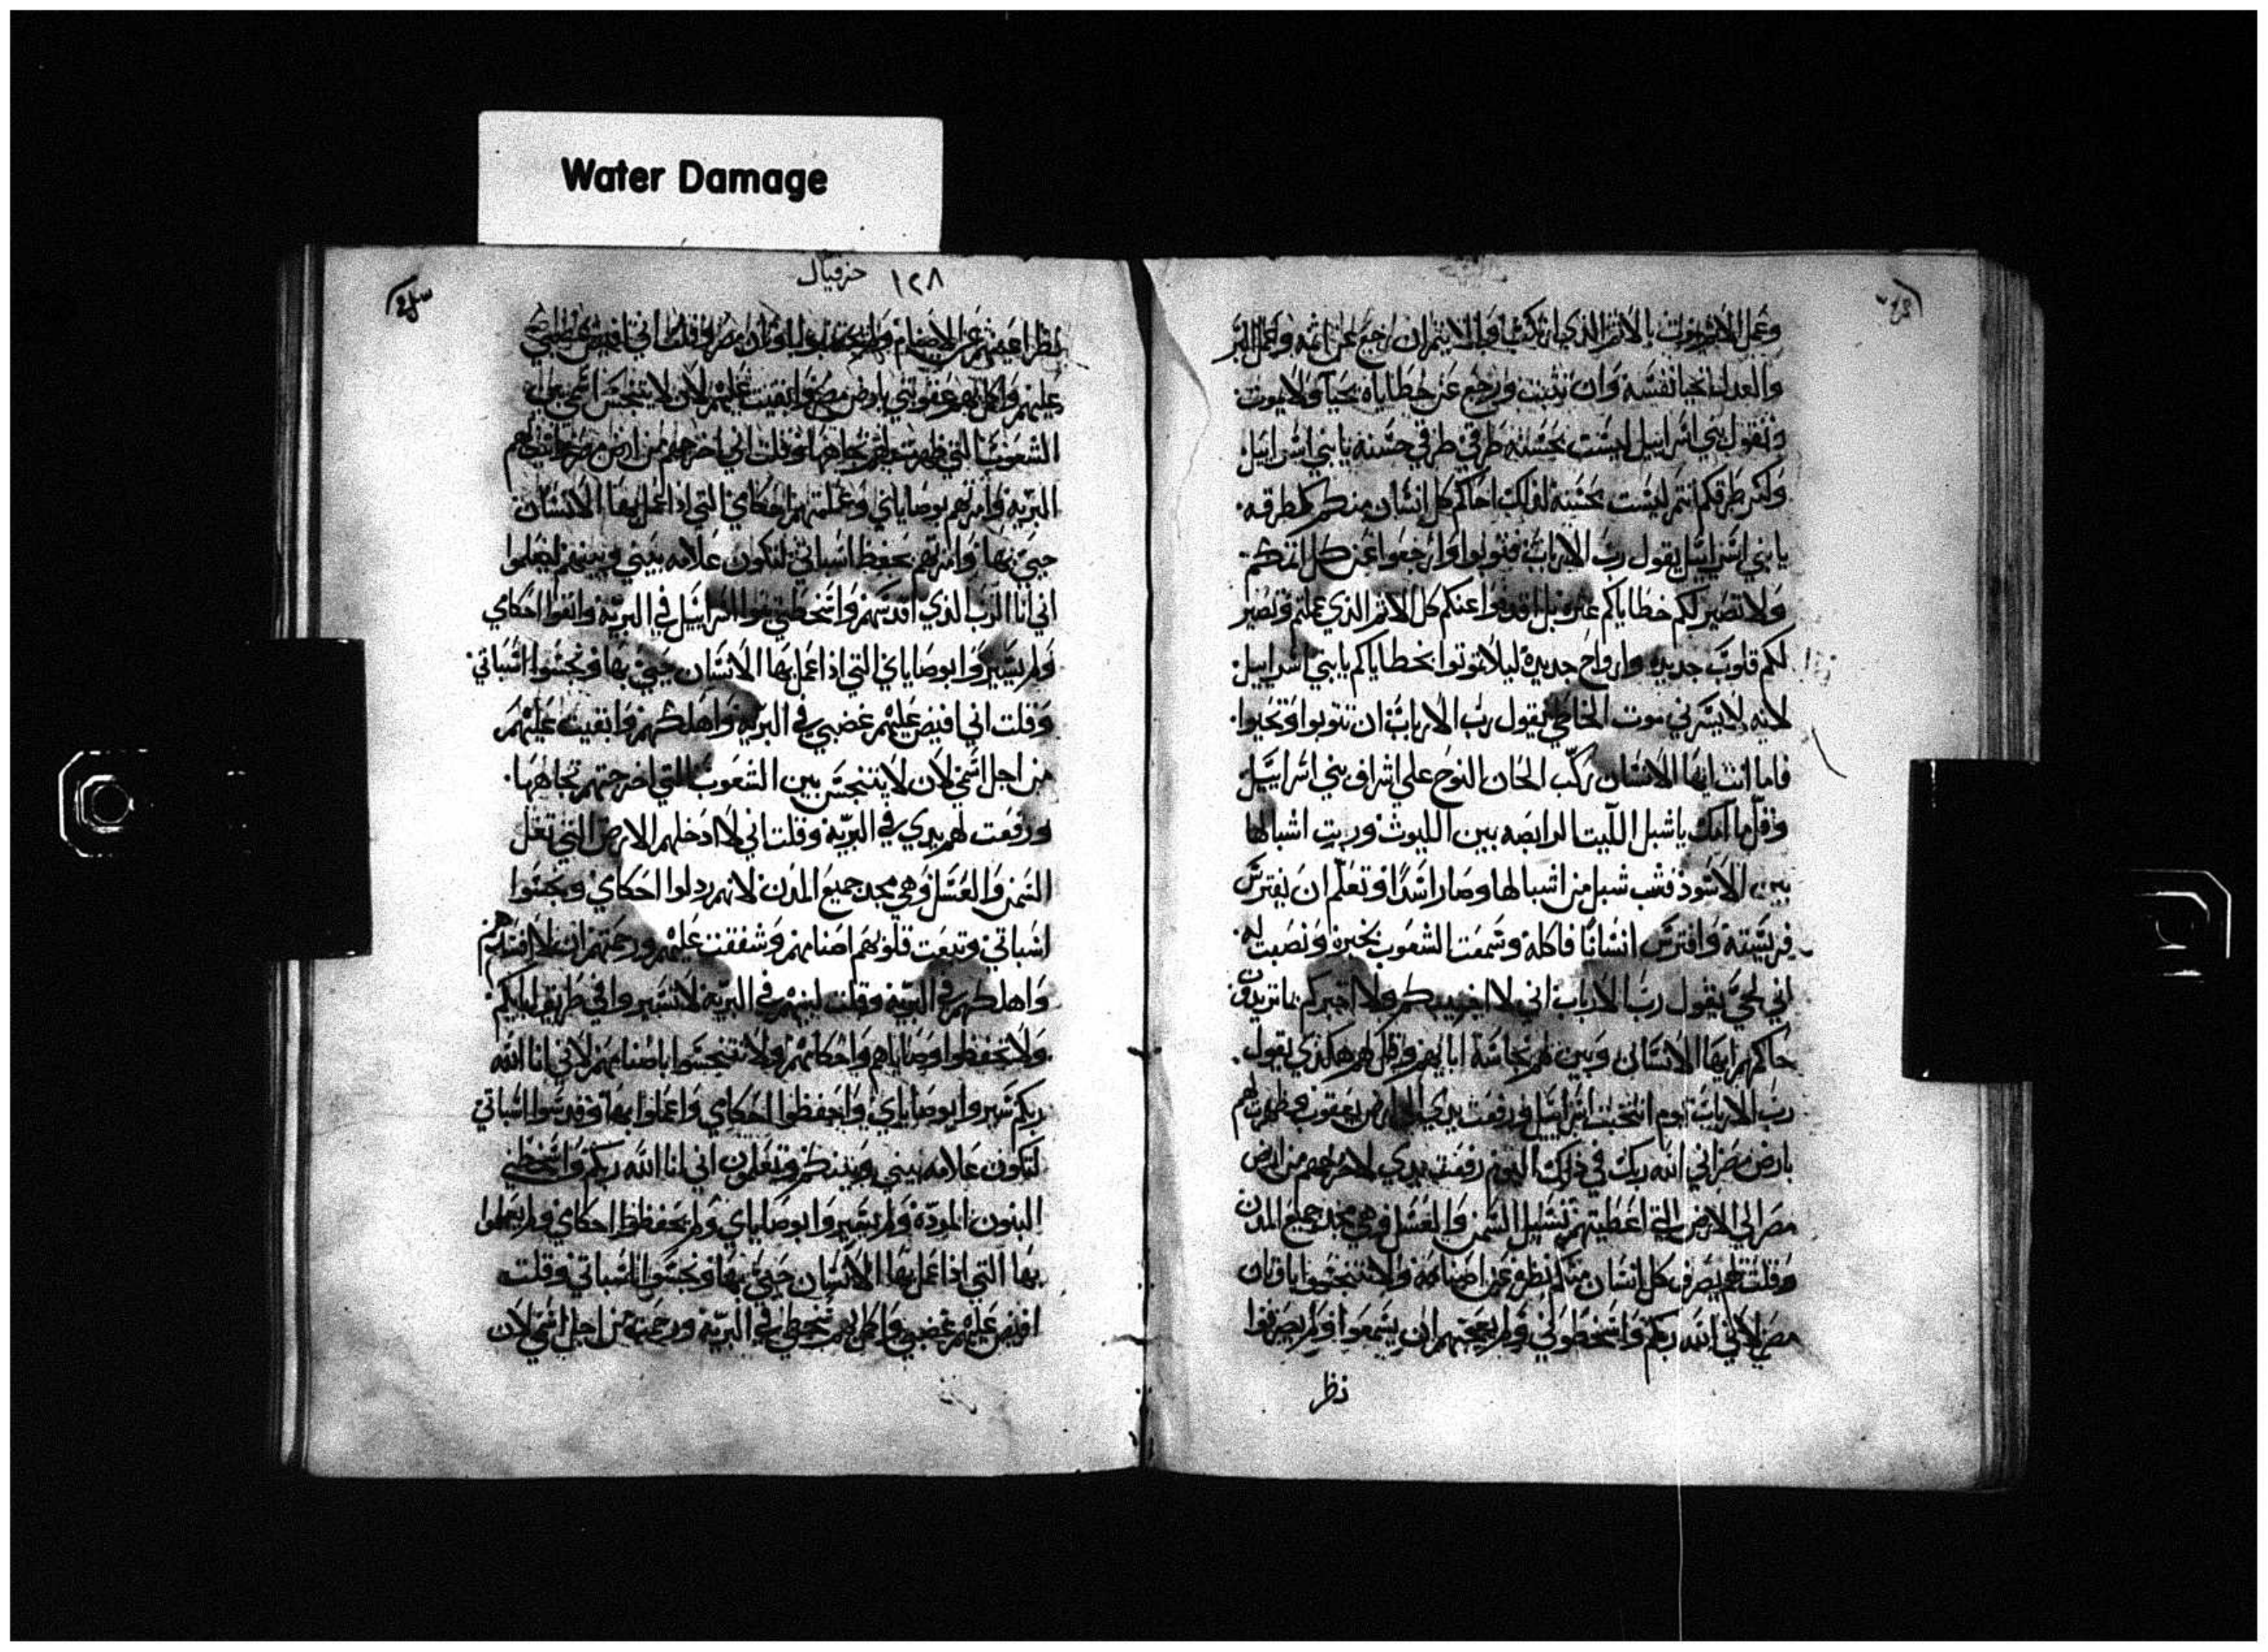 Water Damage
وعمل الاثم يموت بالاثم الذي ارتكب والاثيم ان رجع عن اثمه وعمل البر
والعدل تحيا نفسه وان تثبت ورجع عن خطاياه يحيا ولا يموت
وتقول بني اسراييل ليست بحسنه طرقي طرقي حسنة يا بني اسراييل
ولكن طرقكم انتم ليست بحسنة لذلك احاكم كل انسان منكم كطرقه
يا بني اسراييل يقول رب الارباب فتوبوا وارجعوا عن كل اثمكم
ولا تصير لكم خطاياكم عثرة بل اقذفوا عنكم كل الاثم الذي عملتم وتصير
لكم قلوب جديدة وارواح جديدة ليلا تموتوا بخطاياكم يا بني اسراييل
لانه لا يسرني موت الخاطي يقول رب الارباب ان تتوبوا وتحيوا
فاما انت ايها الانسان ركب الحان النوح على اشراف بني اسراييل
وقل ما امك يا شبل الليث الرابضه بين الليوث وربت اشبالها
بين الاسود فشب شبل من اشبالها وصار اسدا وتعلم ان يفترس
فريسته وافترس انسانا فاكله وسمعت الشعوب بخبره ونصبت له
اني لحي يقول رب الارباب اني لا اجيبكم ولا اخبركم بما تريدون
حاكمهم ايها الانسان وبين لهم نجاسة ابايهم وقل لهم هكذي يقول
رب الارباب يوم انتخبت اسراييل ورفعت يدي يعقوب وظهرت لهم
بارض مصر اني الله ربك في ذلك اليوم رفعت يدي لاخرجهم من ارض
مصر الي الارض التي اعطيتهم تسيل السمن والعسل وهي مجد جميع المدن
وقلت لهم يصرف كل انسان منكم نظره عن اصنامه ولا تتنجسوا باوثان
مصر لاني الله ربكم واسخطوني ولم يعجبهم ان يسمعوا ولم يصرفوا
نظر
١٢٨ حزقيال
نظر اعينهم عن الاصنام ولم اوثان مصر وقلت اني افيض غضبي
عليهم واكمل بهم عقوبتي بارض مصر وابقيت عليهم لان لا يتنجس اسمي بين
الشعوب التي ظهرت لهم تجاهها وقلت اني اخرجهم من ارض مصر الي
البريه وامرتهم بوصاياي وعلمتهم احكامي التي اذا عمل بها الانسان
حيي بها وامرتهم بحفظ اسباتي لتكون علامه بيني وبينهم ليعلموا
اني انا الرب الذي اقدسهم واسخطني بنوا اسراييل في البرية واتقوا احكامي
ولم يسيروا بوصاياي التي اذا عمل بها الانسان حيي بها ونجسوا اسباتي
وقلت اني افيض عليهم غضبي في البرية واهلكهم وابقيت عليهم
من اجل اسمي لان لا يتنجس بين الشعوب التي اخرجتهم تجاهها
ورفعت لهم يدي في البرية وقلت اني لا ادخلهم الارض التي تغل
السمن والعسل وهي مجد جميع المدن لانهم رذلوا احكامي ونجسوا
اسباتي وتبعت قلوبهم اصنامهم وشفقت عليهم ورحمتهم ان لا افسدهم
واهلكهم في البرية وقلت لبنيهم في البرية لا تسيروا في طريق ابايكم
ولا تحفظوا وصاياهم واحكامهم ولا تتنجسوا باصنامهم لاني انا الله
ربكم سيروا بوصاياي واحفظوا احكامي واعملوا بها وقدسوا اسباتي
لتكون علامه بيني وبينكم وتعلمون اني انا الله ربكم واسخطني
البنون المردة ولم يسيروا بوصاياي ولم يحفظوا احكامي ولم يعملوا
بها التي اذا عمل بها الانسان حيي بها ونجسوا اسباتي وقلت
افيض عليهم غضبي واكمل بهم سخطي في البرية ورحمتهم من اجل اسمي لان